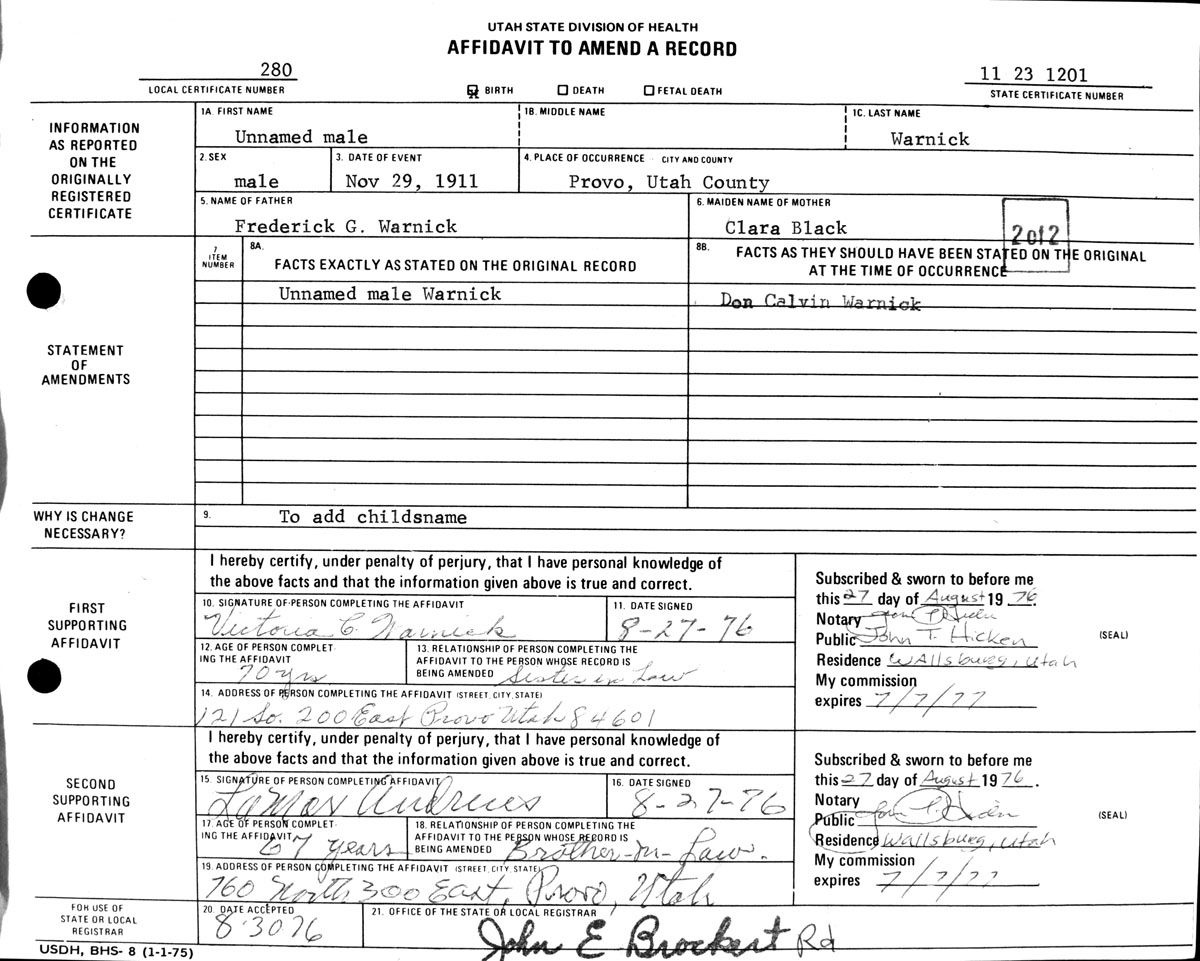 UTAH STATE DIVISION OF HEALTH
AFFIDAVIT TO AMEND A RECORD
280
LOCAL CERTIFICATE NUMBER
BIRTH DEATH FETAL DEATH
11 23 1201
STATE CERTIFICATE NUMBER
INFORMATION
AS REPORTED
ON THE
ORIGINALLY
REGISTERED
CERTIFICATE
1A. FIRST NAME
Unnamed male
1B. MIDDLE NAME
1C. LAST NAME
Warnick
2. SEX
male
3. DATE OF EVENT
Nov 29, 1911
4. PLACE OF OCCURRENCE CITY AND COUNTY
Provo, Utah County
5. NAME OF FATHER
Frederick G. Warnick
6. MAIDEN NAME OF MOTHER
Clara Black
2 of 2
STATEMENT
OF
AMENDMENTS
7
ITEM
NUMBER
8A.
FACTS EXACTLY AS STATED ON THE ORIGINAL RECORD
8B.
FACTS AS THEY SHOULD HAVE BEEN STATED ON THE ORIGINAL
AT THE TIME OF OCCURRENCE
Unnamed male Warnick
Don Calvin Warnick
WHY IS CHANGE
NECESSARY?
9.
To add childsname
FIRST
SUPPORTING
AFFIDAVIT
I hereby certify, under penalty of perjury, that I have personal knowledge of
the above facts and that the information given above is true and correct.
10. SIGNATURE OF PERSON COMPLETING THE AFFIDAVIT
Victoria C. Warnick
11. DATE SIGNED
8-27-76
12. AGE OF PERSON COMPLET-
ING THE AFFIDAVIT
70 yrs
13. RELATIONSHIP OF PERSON COMPLETING THE
AFFIDAVIT TO THE PERSON WHOSE RECORD IS
BEING AMENDED Sister in Law
14. ADDRESS OF PERSON COMPLETING THE AFFIDAVIT (STREET, CITY, STATE)
121 So. 200 East Provo Utah 84601
Subscribed & sworn to before me
this 27 day of August 19 76.
Notary
Public John T. Hicken
Residence Wallsburg, Utah
My commission
expires 7/7/77
(SEAL)
SECOND
SUPPORTING
AFFIDAVIT
I hereby certify, under penalty of perjury, that I have personal knowledge of
the above facts and that the information given above is true and correct.
15. SIGNATURE OF PERSON COMPLETING AFFIDAVIT
LaMar Andrews
16. DATE SIGNED
8-27-76
17. AGE OF PERSON COMPLET-
ING THE AFFIDAVIT
67 years
18. RELATIONSHIP OF PERSON COMPLETING THE
AFFIDAVIT TO THE PERSON WHOSE RECORD IS
BEING AMENDED Brother-in-Law.
19. ADDRESS OF PERSON COMPLETING THE AFFIDAVIT (STREET, CITY, STATE)
760 North 300 East, Provo, Utah
Subscribed & sworn to before me
this 27 day of August 1976.
Notary
Public
Residence Wallsburg, Utah
My commission
expires 7/7/77
(SEAL)
FOR USE OF
STATE OR LOCAL
REGISTRAR
20. DATE ACCEPTED
8-30 76
21. OFFICE OF THE STATE OR LOCAL REGISTRAR
John E Brockert Rd
USDH, BHS- 8 (1-1-75)